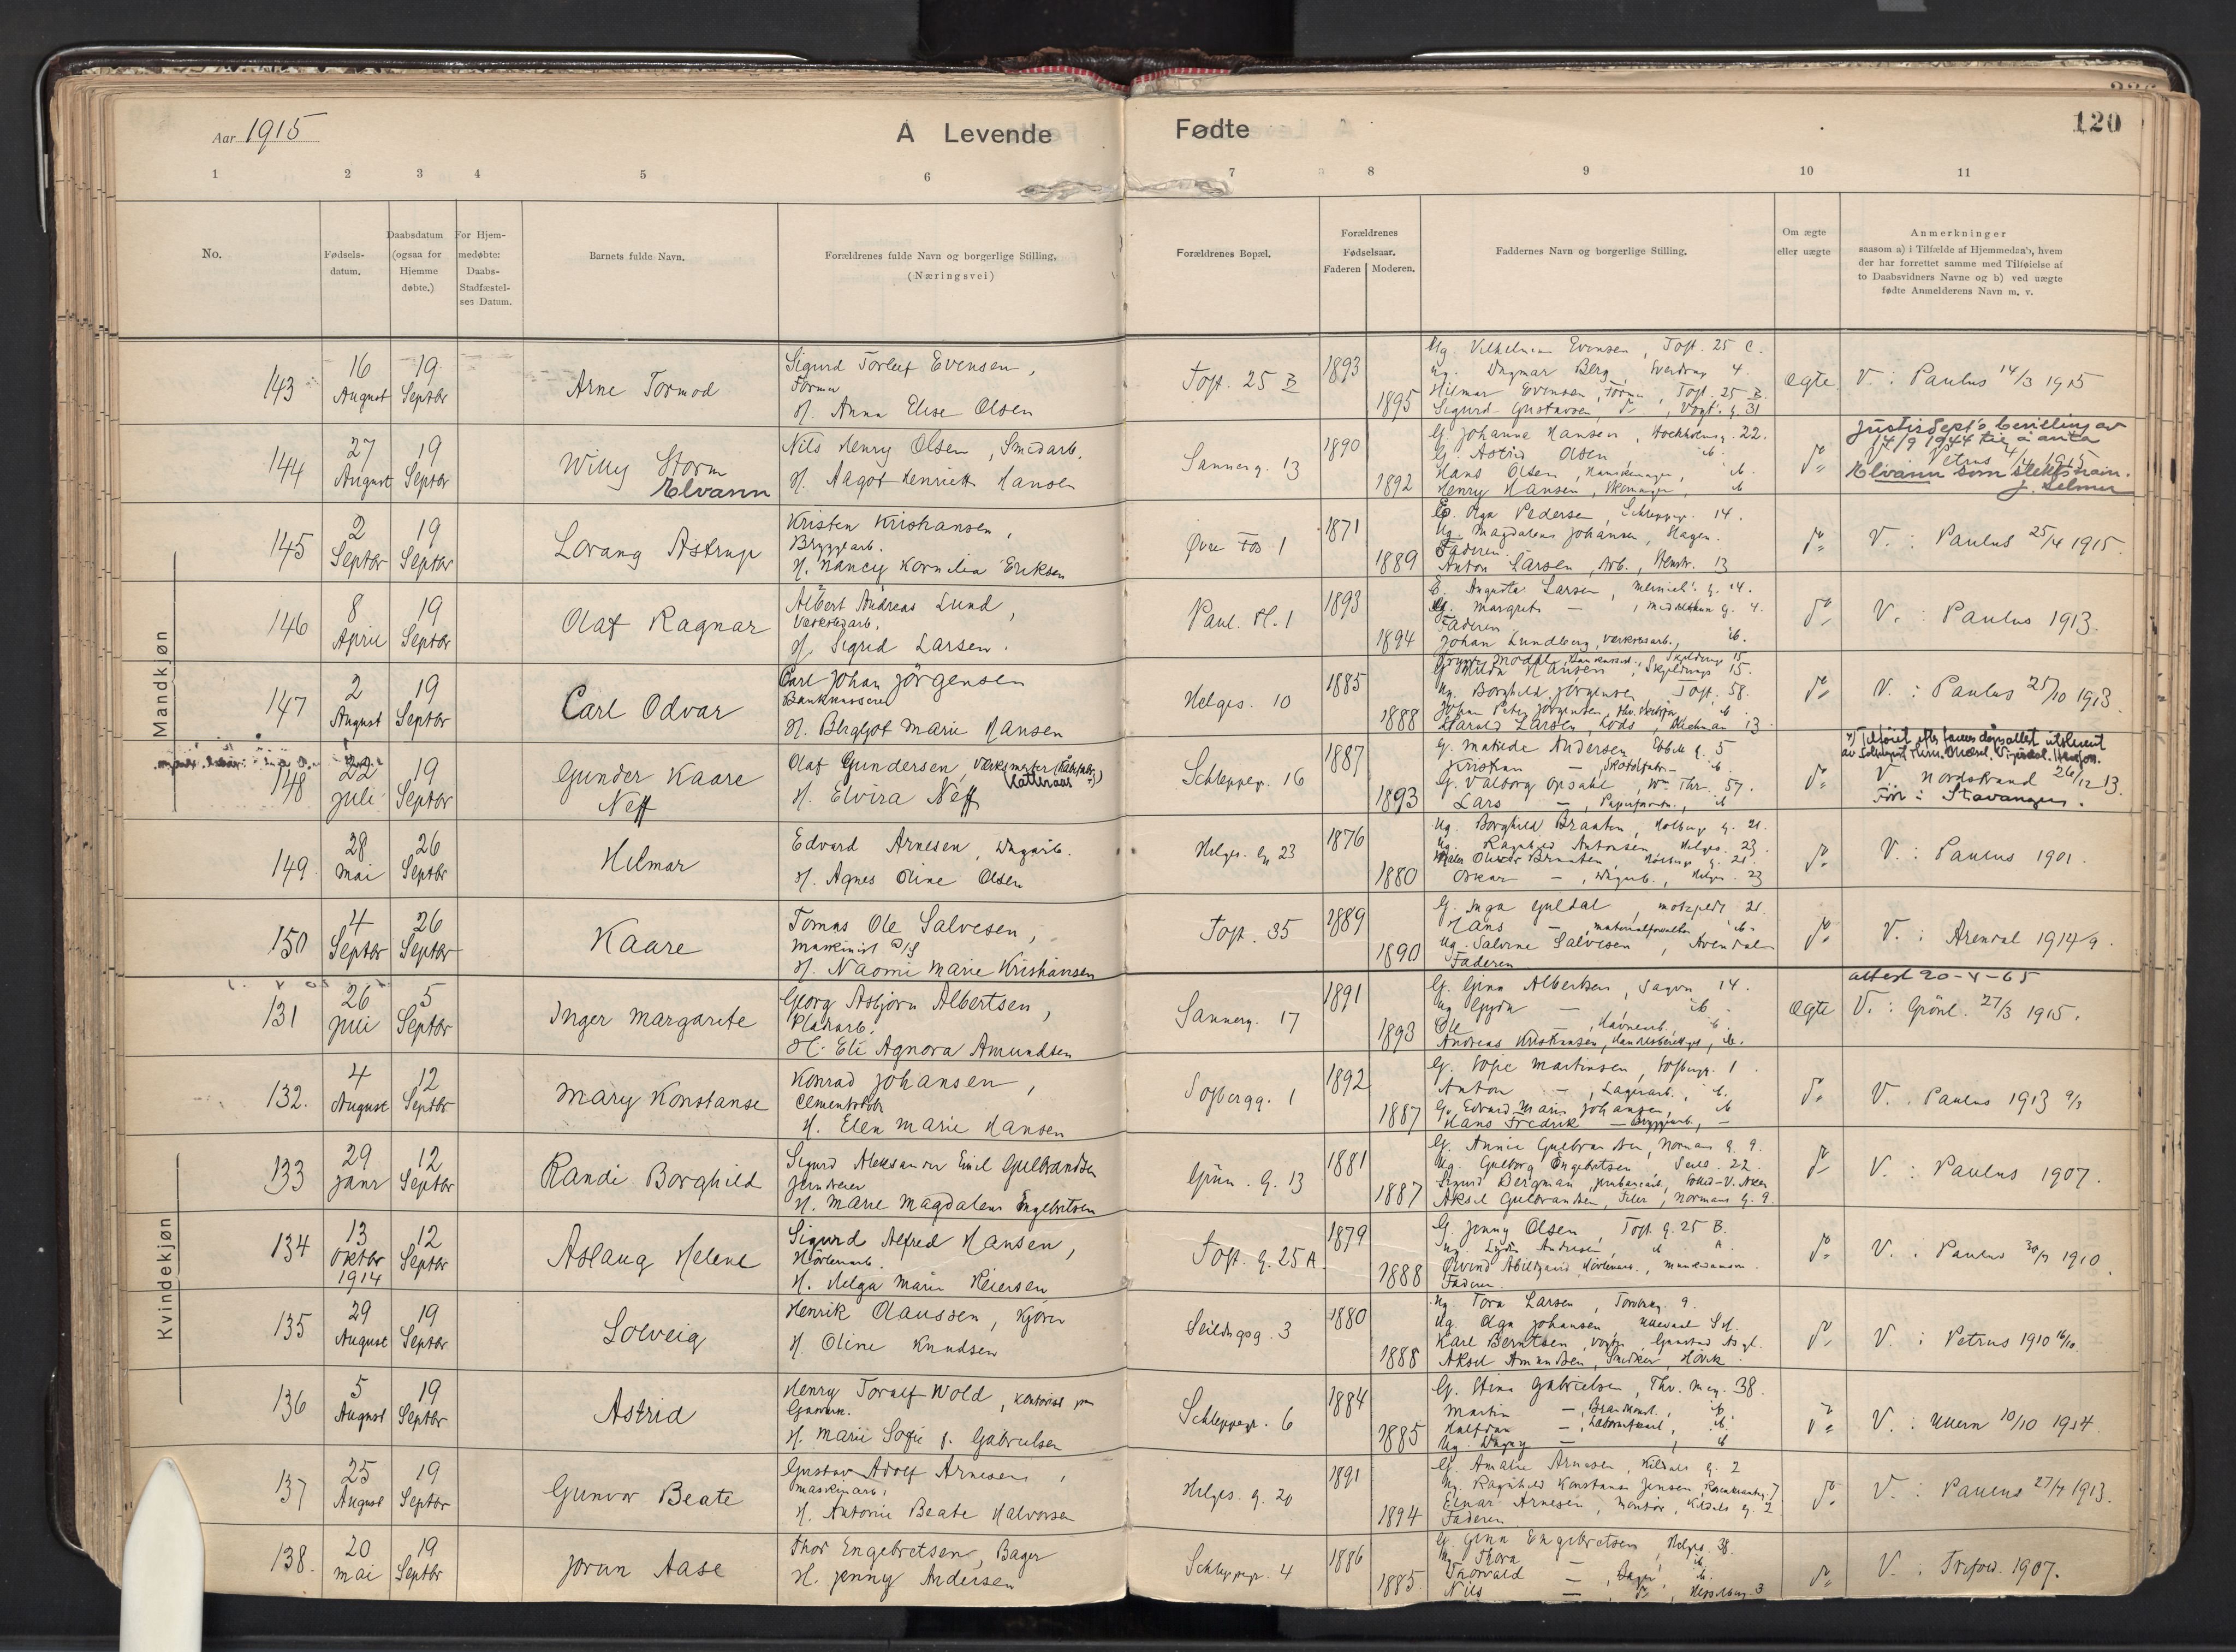 Aar 1915
A Levende
Fødte
120
1 2 3 4 5 6 7 8 9 10 11
No.
Fødsels-
datum.
Daabsdatum
(ogsaa for
Hjemme
døbte.)
For Hjem-
medøbte:
Daabs-
Stadfæstel-
ses Datum.
Barnets fulde Navn.
Forældrenes fulde Navn og borgerlige Stilling,
(Næringsvei)
Forældrenes Bopæl.
Forældrenes
Fødselsaar.
Faderen Moderen.
Faddernes Navn og borgerlige Stilling.
Om ægte
eller uægte
Anmerkninger
saasom a) i Tilfælde af Hjemmedaab, hvem
der har forrettet samme med Tilføielse af
to Daabsvidners Navne og b) ved uægte
fødte Anmelderens Navn m. v.
Mandkjøn
143
16
August
19
Septbr
Arne Tormod
Sigurd Torleif Evensen,
Former
H. Anna Elise Olsen
Toft. 25 B
1893
1895
Ug. Vilhelmine Evensen, Toft. 25 C.
Ug. Dagmar Berg, Sverdrup 4.
Hilmar Evensen, Former, Toft. 25 B.
Sigurd Gustavsen, do, Vogt. g. 31
ægte
V. : Paulus 14/3 1915
144
27
August
19
Septbr
Willy Storm
Elvann
Nils Henry Olsen, Smedarb.
H. Aagot Henriette Hansen
Sannerg. 13
1890
1892
G. Johanna Hansen, Stockholmsg. 22.
G. Astrid Olsen, ib.
Hans Olsen, ib.
Henry Hansen, ib
do
Justisdept's bevilling av
14/9 1944 til å anta
Petrus 4/4 1915
Elvann som slektsnavn.
J. Selmer
145
2
Septbr
19
Septbr
Lorang Astrup
Kristen Kristiansen,
Bryggearb.
H. Nancy Kornelia Eriksen
Øvre Fos 1
1871
1889
E. Olga Pedersen, Schleppegr. 14.
Ug. Magdalena Johansen, Hagen.
Faderen.
Anton Larsen, Arb., 13
do
V. : Paulus 25/4 1915.
146
8
April
19
Septbr
Olaf Ragnar
Albert Andreas Lund,
Verkstedarb.
H. Sigrid Larsen.
Paul. Pl. 1
1893
1894
E. Augusta Larsen, g. 14.
Ug. Margrete — , g. 4.
Faderen
Johan Lundberg, Verkstedarb., ib.
do
V. : Paulus 1913.
147
2
August
19
Septbr
Carl Odvar
Carl Johan Jörgensen
Bankkasserer
H. Bergljot Marie Hansen
Helges. 10
1885
1888
G. Hilda Hansen, 15.
Ug. Borghild Jörgensen, Toft. 58.
Johan Peter Jörgensen, ib
Harald Larsen, Lods, 13
do
V. : Paulus 25/10 1913
148
22
Juli
19
Septbr
Gunder Kaare
Neff
Olaf Gundersen, Værksmester
Kattraas
H. Elvira Neff
Schleppegr. 16
1887
1893
G. Matilde Andersen, g. 5
Kristian — ib
G. Valborg Opsahl, Wm. Thr. 57.
Lars — , ib
do
V. Nordstrand 26/12 13.
Før i Stavanger.
149
28
Mai
26
Septbr
Hilmar
Edvard Arnesen, Dagarb.
H. Agnes Oline Olsen
Helges. g. 23
1876
1880
Ug. Borghild Braaten, Holberg g. 21.
Ug. Ragnhild Antonsen, Helges. 23
Maler Oliver Braaten, Holbergs g. 21.
Oskar — , Dagarb., Helges. 23
do
V. : Paulus 1901.
150
4
Septbr
26
Septbr
Kaare
Tomas Ole Salvesen,
Maskinist D/S
H. Naomi Marie Kristiansen
Toft. 35
1889
1890
G. Inga Guldal, 21.
Hans — , Materialforvalter ib.
Ug. Salvine Salvesen, Arendal
Faderen
do
V. : Arendal 1914/9.
Kvindekjøn
131
26
Juli
5
Septbr
Inger Margarete
Georg Asbjörn Albertsen,
Pladsarb.
H. Eli Agnora Amundsen
Sannerg. 17
1891
1893
G. Gina Albertsen, Sagvn 14.
Ug. Gyda — ib.
Ole — , Havnearb., ib.
Andreas Kristiansen, Handelsbetjent, ib.
ægte
attest 20-4-65
V. : Grönl. 27/3 1915.
132.
4
August
12
Septbr
Mary Konstanse
Konrad Johansen,
Cementstöber
H. Elen Marie Hansen
Tofbergg. 1
1892
1887
G. Sofie Martinsen, 1
Anton — , Lagerarb., ib.
G. Edvard Marie Johansen, ib
Hans Fredrik — Byggearb., —
do
V. : Paulus 1913 9/3
133
29
Janr
12
Septbr
Randi Borghild
Sigurd Aleksander Emil Gulbrandsen
Jerndreier
H. Marie Magdalene Engebretsen
Grün. g. 13
1881
1887
G. Annie Gulbrandsen, Normans g. 9.
Ug. Gulborg Engebretsen, 22.
Sigurd Bergman, Jernbanearb.,
Aksel Gulbrandsen, Filer, Normans g. 9.
do
V. : Paulus 1907.
134
13
Oktbr
1914
12
Septbr
Aslaug Helene
Sigurd Alfred Hansen,
Hövlerarb.
H. Helga Marie Reiersen
Toft. g. 25 A.
1879
1888
G. Jenny Olsen, Toft. g. 25 B.
Ug. Lydia Andresen, ib A.
Øivind Abildgaard, Hövlerarb.,
Faderen.
do
V. : Paulus 1910.
135
29
August
19
Septbr
Solveig
Henrik Olaussen, Kjörer
H. Oline Knudsen
Seildugsg. 3
1880
1888
Ug. Tora Larsen, 9.
Ug. Olga Johansen Ullevaal
Karl Berntsen, Gaustad Asyl.
Aksel Amundsen, Snedker, Hövik.
do
V. : Petrus 1910 16/10.
136
5
August
19
Septbr
Astrid
Henry Toralf Wold, Kontorist paa
Gasverk.
H. Marie Sofie f. Gabrielsen
Schleppegr. 6
1884
1885
G. Stina Gabrielsen, Thv. Mey. 38.
Martin — , ib.
Halfdan — , ib.
Ug. Dagny — , ib
do
V. : Ullern 10/10 1914.
137
25
August
19
Septbr
Gunvor Beate
Gustav Adolf Arnesen,
Maskinarb.
H. Antonie Beate Halvorsen
Helges. g. 20
1891
1894
G. Amalie Arnesen, Kildals g. 2
Ug. Ragnhild Konstanse Jensen, Rosenkrantzg. 7
Einar Arnesen, Montör, Kildals g. 2
Faderen
do
V. : Paulus 27/7 1913.
138.
20
Mai
19
Septbr
Jorun Aase
Thor Engebretsen, Bager
H. Jenny Andersen
Schleppegr. 4
1886
1885
G. Gina Engebretsen, Helges. 38.
Ug. Thora — ib.
Thorvald — , Bager, ib.
Nils — , do, Hesselberg 3
do
V. : Trefold. 1907.